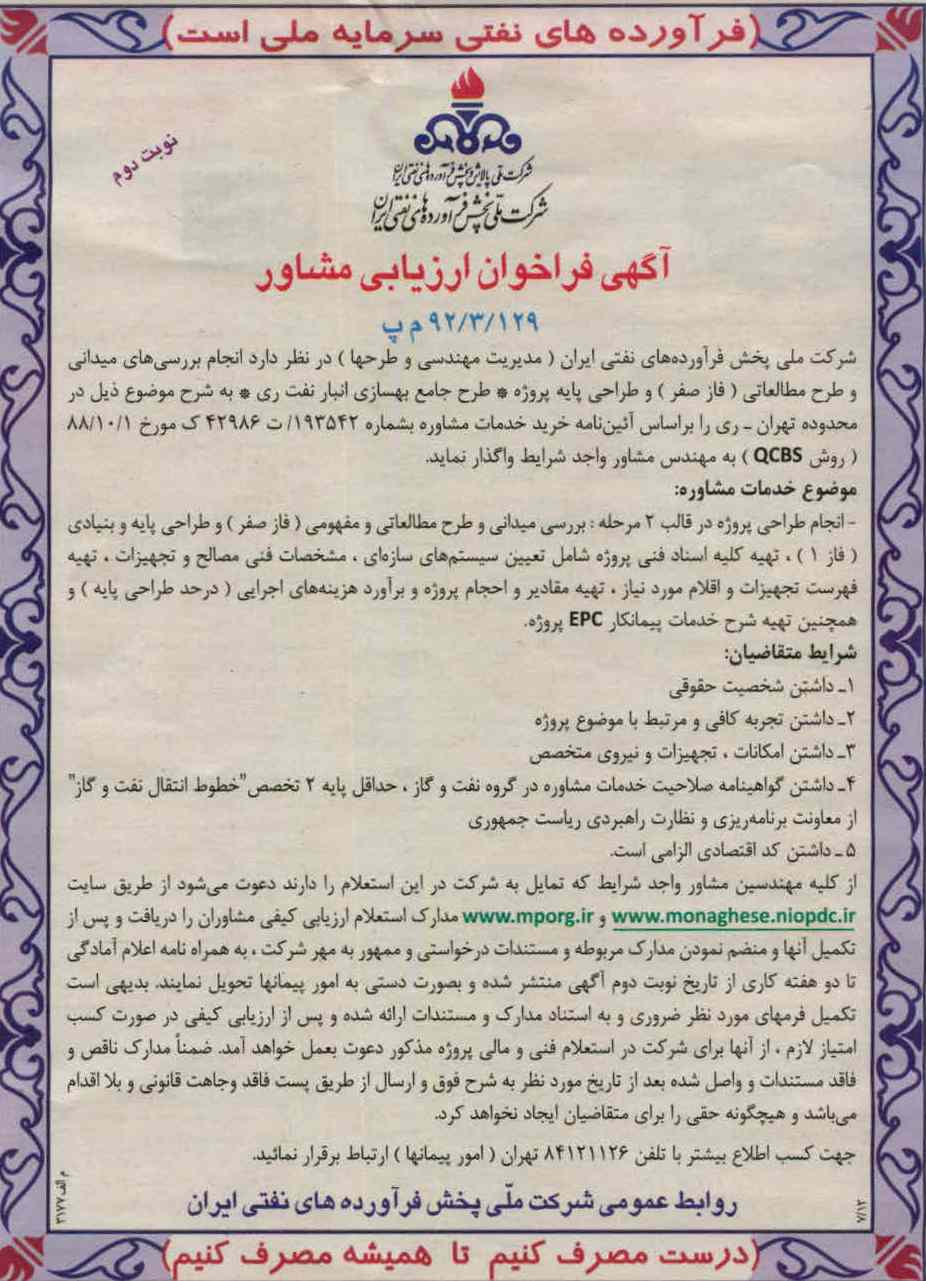 (فرآورده های نفتی سرمایه ملی است)
نوبت دوم
شرکت ملی پالایش و پخش فرآورده‌های نفتی ایران
شرکت ملّی پخش فرآورده‌های نفتی ایران
آگهی فراخوان ارزیابی مشاور
۹۲/۳/۱۲۹ م پ
شرکت ملی پخش فرآورده‌های نفتی ایران ( مدیریت مهندسی و طرحها ) در نظر دارد انجام بررسی‌های میدانی
و طرح مطالعاتی ( فاز صفر ) و طراحی پایه پروژه * طرح جامع بهسازی انبار نفت ری * به شرح موضوع ذیل در
محدوده تهران ـ ری را براساس آئین‌نامه خرید خدمات مشاوره بشماره ۱۹۳۵۴۲/ ت ۴۲۹۸۶ ک مورخ ۸۸/۱۰/۱
( روش QCBS ) به مهندس مشاور واجد شرایط واگذار نماید.
موضوع خدمات مشاوره:
- انجام طراحی پروژه در قالب ۲ مرحله : بررسی میدانی و طرح مطالعاتی و مفهومی ( فاز صفر ) و طراحی پایه و بنیادی
( فاز ۱ ) ، تهیه کلیه اسناد فنی پروژه شامل تعیین سیستم‌های سازه‌ای ، مشخصات فنی مصالح و تجهیزات ، تهیه
فهرست تجهیزات و اقلام مورد نیاز ، تهیه مقادیر و احجام پروژه و برآورد هزینه‌های اجرایی ( درحد طراحی پایه ) و
همچنین تهیه شرح خدمات پیمانکار EPC پروژه.
شرایط متقاضیان:
۱ـ داشتن شخصیت حقوقی
۲ـ داشتن تجربه کافی و مرتبط با موضوع پروژه
۳ـ داشتن امکانات ، تجهیزات و نیروی متخصص
۴ـ داشتن گواهینامه صلاحیت خدمات مشاوره در گروه نفت و گاز ، حداقل پایه ۲ تخصص"خطوط انتقال نفت و گاز"
از معاونت برنامه‌ریزی و نظارت راهبردی ریاست جمهوری
۵ ـ داشتن کد اقتصادی الزامی است.
از کلیه مهندسین مشاور واجد شرایط که تمایل به شرکت در این استعلام را دارند دعوت می‌شود از طریق سایت
www.monaghese.niopdc.ir و www.mporg.ir مدارک استعلام ارزیابی کیفی مشاوران را دریافت و پس از
تکمیل آنها و منضم نمودن مدارک مربوطه و مستندات درخواستی و ممهور به مهر شرکت ، به همراه نامه اعلام آمادگی
تا دو هفته کاری از تاریخ نوبت دوم آگهی منتشر شده و بصورت دستی به امور پیمانها تحویل نمایند. بدیهی است
تکمیل فرمهای مورد نظر ضروری و به استناد مدارک و مستندات ارائه شده و پس از ارزیابی کیفی در صورت کسب
امتیاز لازم ، از آنها برای شرکت در استعلام فنی و مالی پروژه مذکور دعوت بعمل خواهد آمد. ضمناً مدارک ناقص و
فاقد مستندات و واصل شده بعد از تاریخ مورد نظر به شرح فوق و ارسال از طریق پست فاقد وجاهت قانونی و بلا اقدام
می‌باشد و هیچگونه حقی را برای متقاضیان ایجاد نخواهد کرد.
جهت کسب اطلاع بیشتر با تلفن ۸۴۱۲۱۱۲۶ تهران ( امور پیمانها ) ارتباط برقرار نمائید.
روابط عمومی شرکت ملّی پخش فرآورده های نفتی ایران
۷/۱۲
م الف ۳۱۷۷
(درست مصرف کنیم تا همیشه مصرف کنیم)